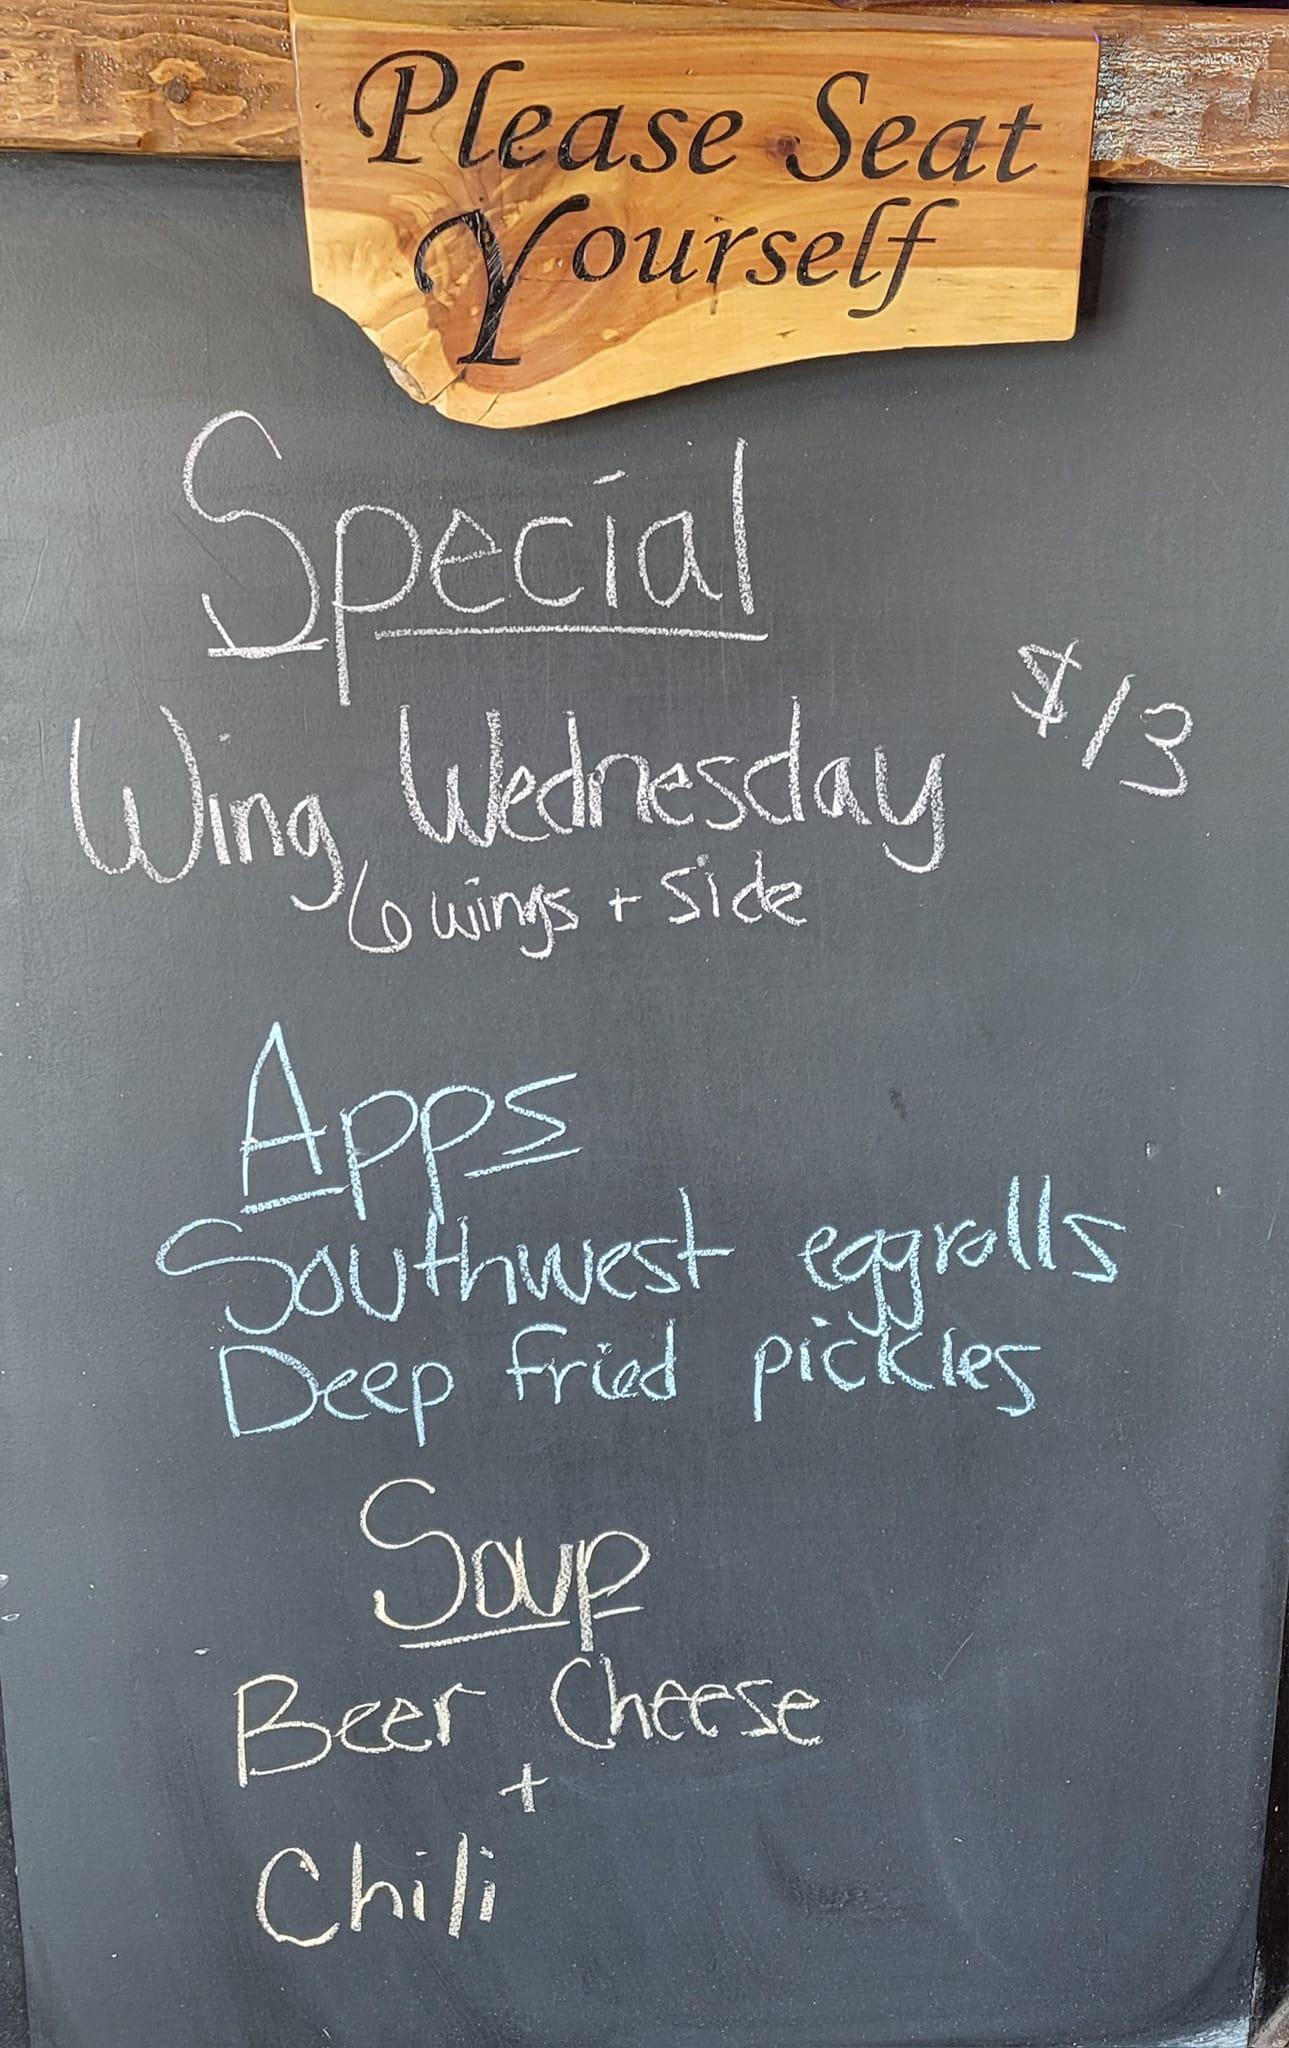 Please Seat
Yourself
Special
Wing Wednesday $13
6 wings + side
Apps
Southwest eggrolls
Deep fried pickles
Soup
Beer Cheese
+
Chili